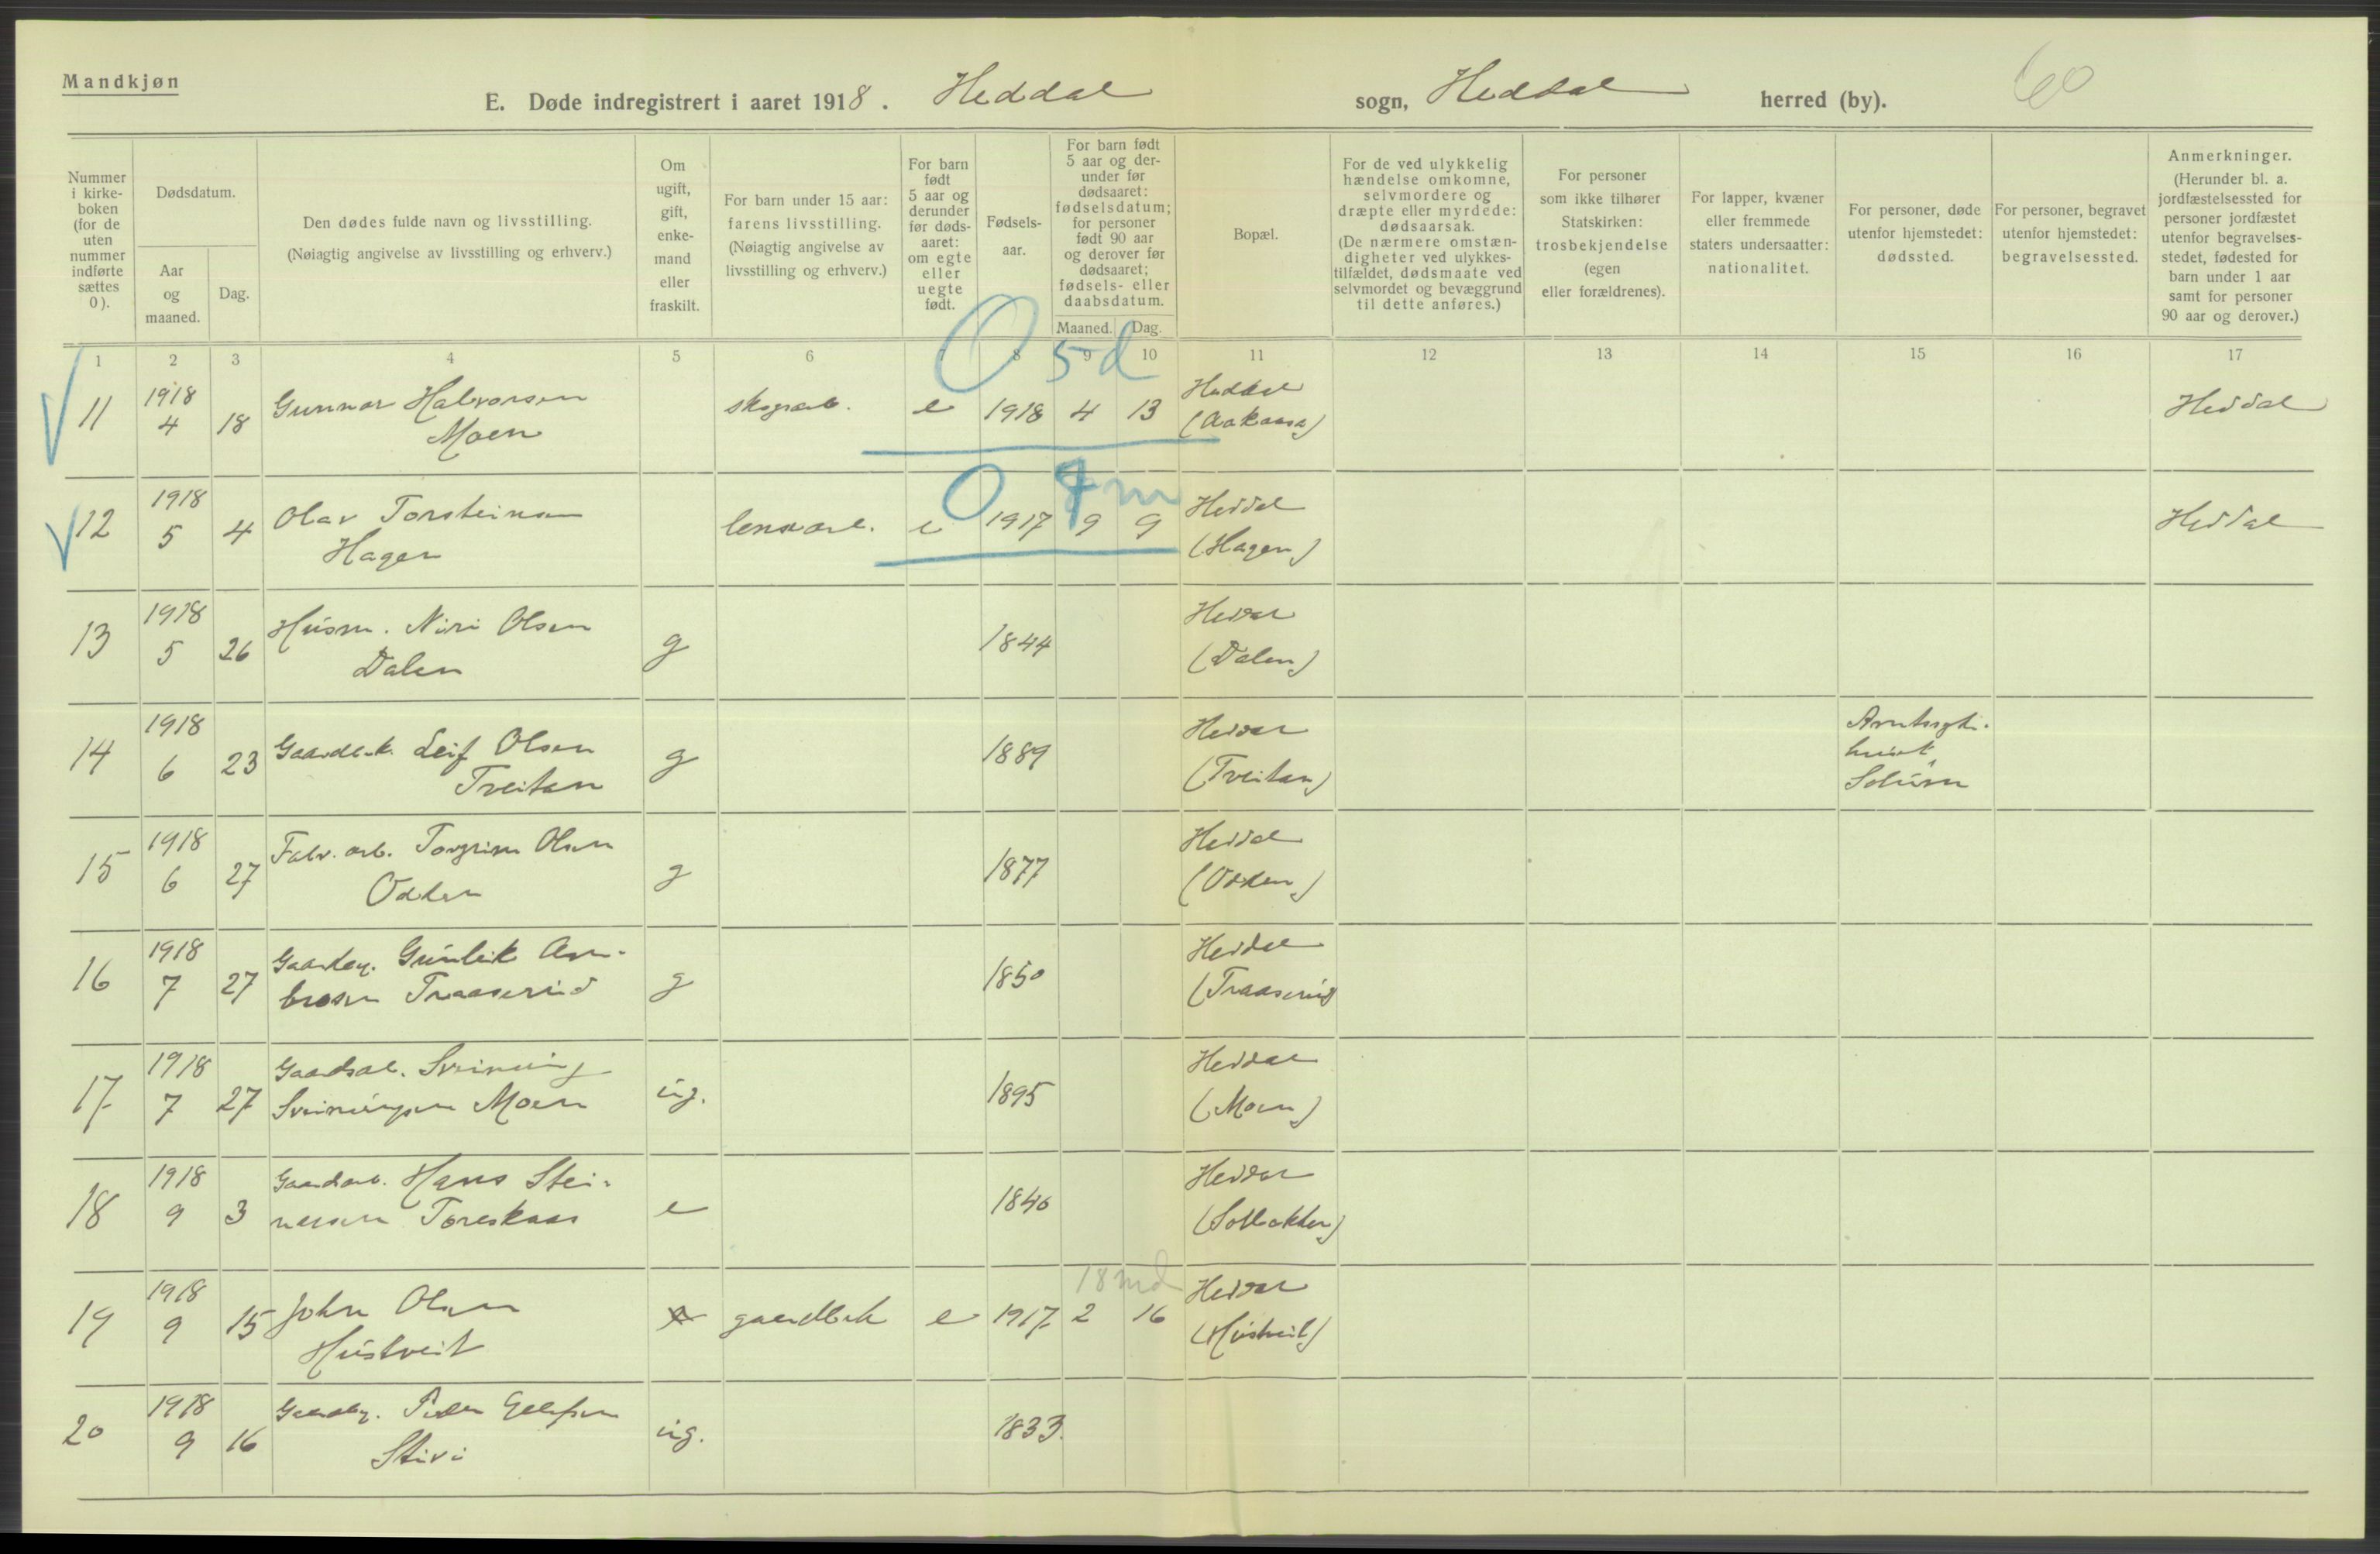 Mandkjøn
E. Døde indregistrert i aaret 1918. Heddal sogn, Heddal herred (by). 60
Nummer i kirke-boken (for de uten nummer indførte sættes 0).
Dødsdatum.
Aar og maaned.
Dag.
Den dødes fulde navn og livsstilling.
(Nøiagtig angivelse av livsstilling og erhverv.)
Om ugift, gift, enke-mand eller fraskilt.
For barn under 15 aar: farens livsstilling.
(Nøiagtig angivelse av livsstilling og erhverv.)
For barn født 5 aar og derunder før døds-aaret: om egte eller uegte født.
Fødsels-aar.
For barn født 5 aar og der-under før dødsaaret: fødselsdatum; for personer født 90 aar og derover før dødsaaret; fødsels- eller daabsdatum.
Maaned. Dag.
Bopæl.
For de ved ulykkelig hændelse omkomne, selvmordere og dræpte eller myrdede: dødsaarsak.
(De nærmere omstæn-digheter ved ulykkes-tilfældet, dødsmaate ved selvmordet og bevæggrund til dette anføres.)
For personer som ikke tilhører Statskirken: trosbekjendelse (egen eller forældrenes).
For lapper, kvæner eller fremmede staters undersaatter: nationalitet.
For personer, døde utenfor hjemstedet: dødssted.
For personer, begravet utenfor hjemstedet: begravelsessted.
Anmerkninger.
(Herunder bl. a. jordfæstelsessted for personer jordfæstet utenfor begravelses-stedet, fødested for barn under 1 aar samt for personer 90 aar og derover.)
1 2 3 4 5 6 7 8 9 10 11 12 13 14 15 16 17
0 5 d
11 1918 4 18 Gunnar Halvorsen Moen skogarb. e 1918 4 13 Heddal (Aakaasa) Heddal
0 m
12 1918 5 4 Olav Torsteinsen Hagen e 1917 9 9 Heddal (Hagen) Heddal
13 1918 5 26 Husm. Niri Olsen Dalen g 1844 Heddal (Dalen)
14 1918 6 23 Gaardbr. Leif Olsen Tveitan g 1889 Heddal (Tveitan) Solum
15 1918 6 27 Fabr. arb. Torgrim Olsen Odden g 1877 Heddal (Odden)
16 1918 7 27 Gaardbr. Gunleik Am-brosen Traaserud g 1850 Heddal (Traaserud)
17 1918 7 27 Gaardsarb. Sveinung Sveinungsen Moen ug. 1895 Heddal (Moen)
18 1918 9 3 Gaardarb. Hans Stei-narsen Toreskaas e 1840 Heddal
18 md
19 1918 9 15 John Olsen Hustveit gaardbruk e 1917 2 16 Heddal (Hustveit)
20 1918 9 16 Peder Ellefsen Stivi ug. 1833.